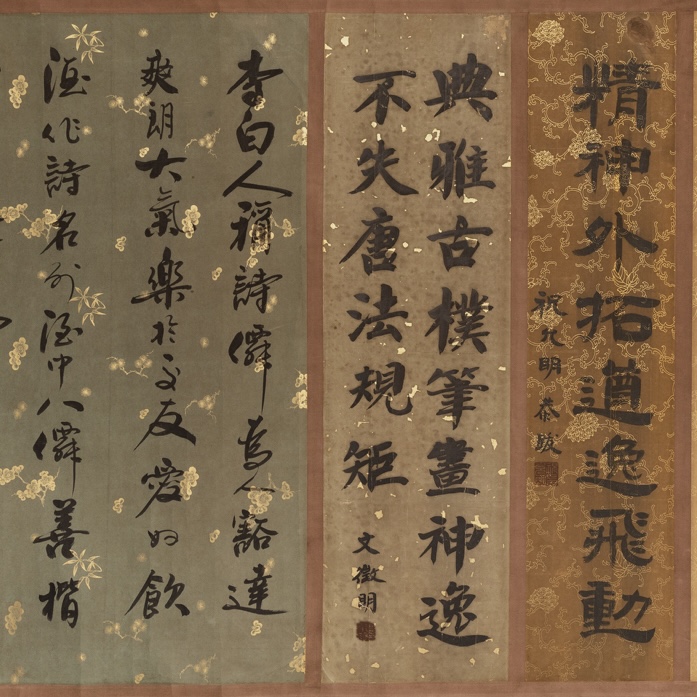 精神外拓遒逸飛動
祝允明 恭
典雅古樸筆畫神逸
不失唐法規矩
文徵明
李白人稱詩僊為人豁達
爽朗大氣樂於交友愛好飲
酒作詩名列酒中八僊善楷